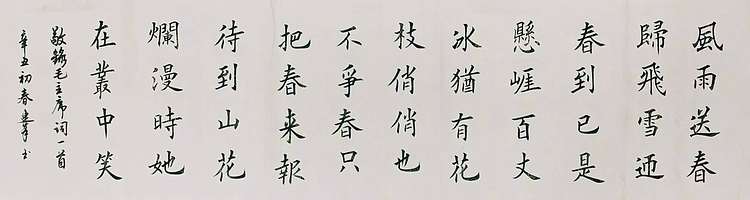 風雨送春
歸飛雪迎
春到已是
懸崕百丈
冰猶有花
枝俏俏也
不爭春只
把春来報
待到山花
爛漫時她
在叢中笑
敬錄毛主席词一首
辛丑初春书